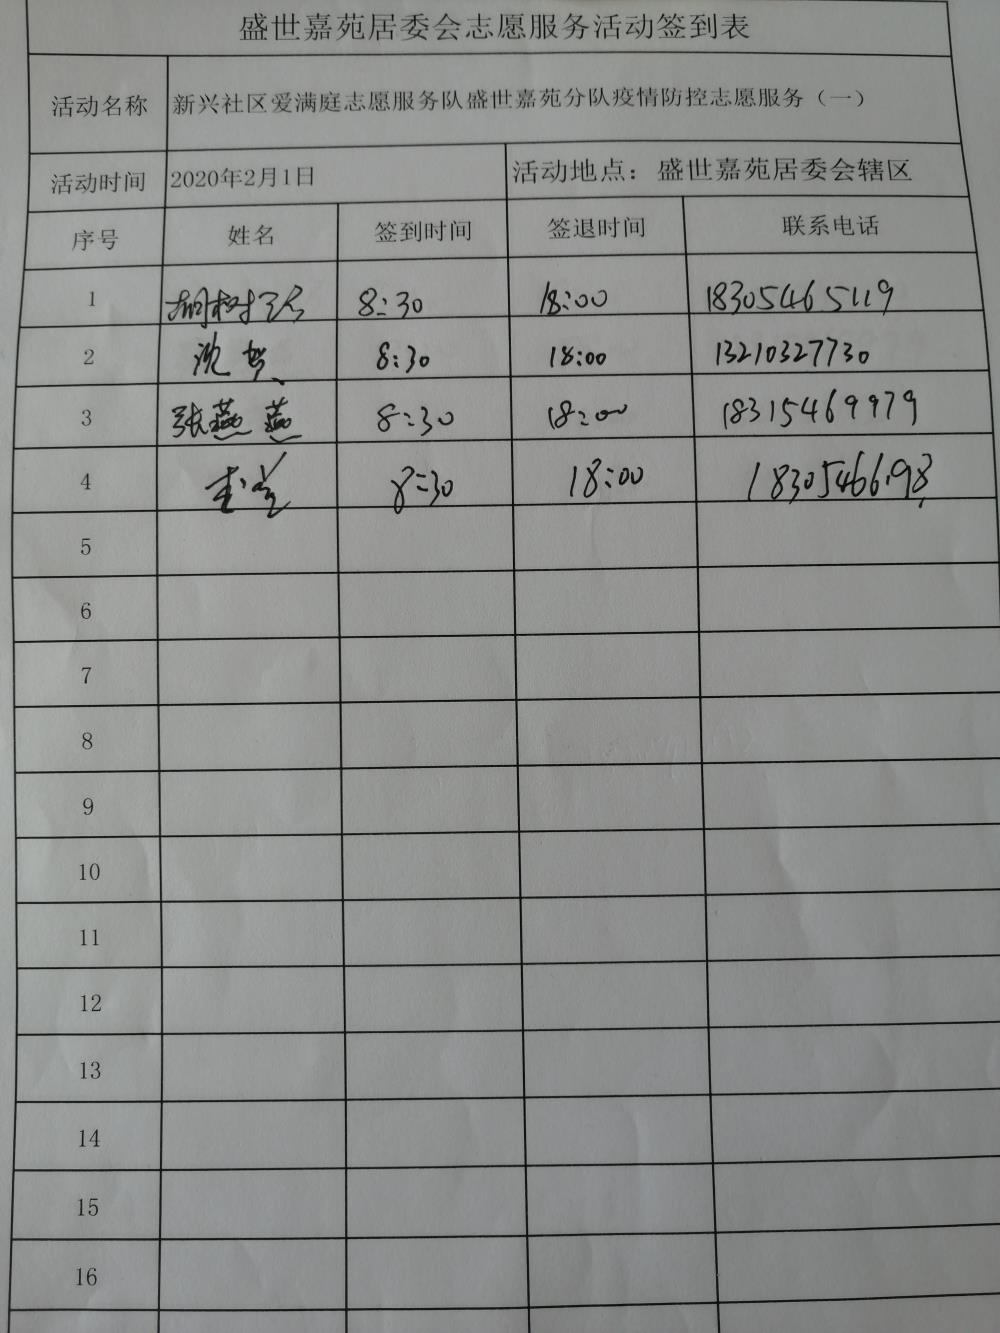 盛世嘉苑居委会志愿服务活动签到表
活动名称 新兴社区爱满庭志愿服务队盛世嘉苑分队疫情防控志愿服务（一）
活动时间 2020年2月1日 活动地点：盛世嘉苑居委会辖区
序号 姓名 签到时间 签退时间 联系电话
1 8:30 18:00 18305465119
2 沈 8:30 18:00 13210327730
3 张燕燕 8:30 18:00 18315469979
4 8:30 18:00 18305466198
5
6
7
8
9
10
11
12
13
14
15
16